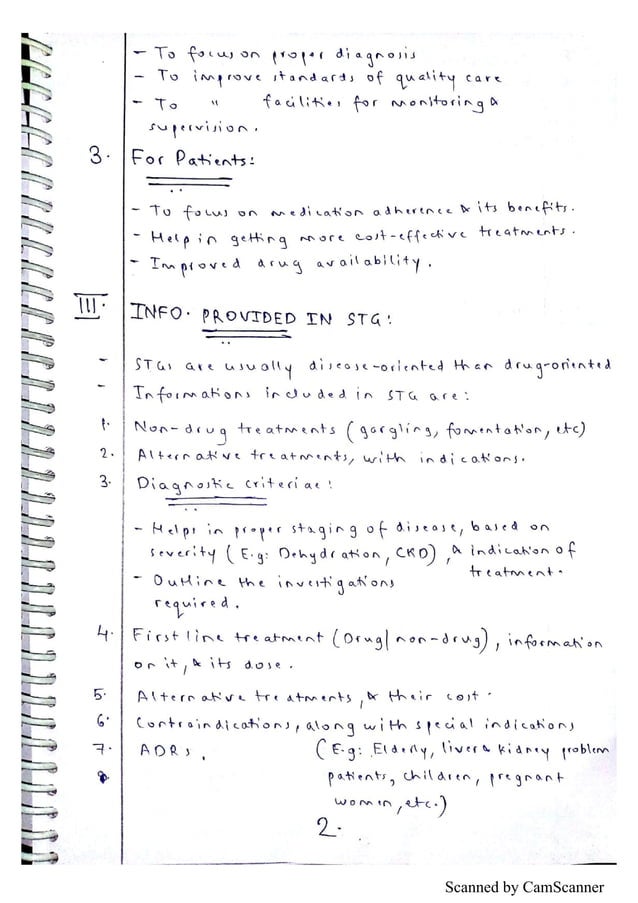 - To focus on proper diagnosis
- To improve standards of quality care
- To " facilities for monitoring &
supervision.
3. For Patients:
- To focus on medication adherence & its benefits.
- Help in getting more cost-effective treatments.
- Improved drug availability.
III. INFO. PROVIDED IN STG:
- STGs are usually disease-oriented than drug-oriented
- Informations included in STG are:
1. Non-drug treatments (gargling, fomentation, etc)
2. Alternative treatments, with indications.
3. Diagnostic criteriae:
- Helps in proper staging of disease, based on
severity (E.g: Dehydration, CKD), & indication of
treatment.
- Outline the investigations
required.
4. First line treatment (Drug/non-drug), information
on it, & its dose.
5. Alternative treatments, & their cost.
6. Contraindications, along with special indications
7. ADRs. (E.g: Elderly, liver & kidney problem
8. patients, children, pregnant
women, etc.)
2.
Scanned by CamScanner